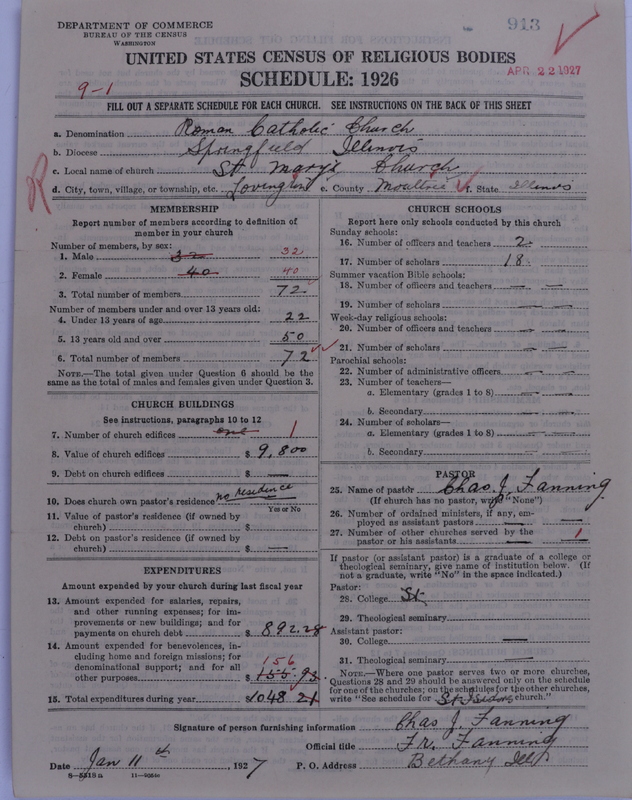 DEPARTMENT OF COMMERCE
BUREAU OF THE CENSUS
WASHINGTON
913
UNITED STATES CENSUS OF RELIGIOUS BODIES
APR 22 1927
SCHEDULE: 1926
9-1
FILL OUT A SEPARATE SCHEDULE FOR EACH CHURCH. SEE INSTRUCTIONS ON THE BACK OF THIS SHEET
a. Denomination Roman Catholic Church
b. Diocese Springfield Illinois
c. Local name of church St Mary's Church
d. City, town, village, or township, etc. Lovington e. County Moultrie f. State Illinois
R
MEMBERSHIP
Report number of members according to definition of
member in your church
Number of members, by sex:
1. Male 32 32
2. Female 40 40
3. Total number of members 72
Number of members under and over 13 years old:
4. Under 13 years of age 22
5. 13 years old and over 50
6. Total number of members 72
NOTE.—The total given under Question 6 should be
the same as the total of males and females given under Question 3.
CHURCH BUILDINGS
See instructions, paragraphs 10 to 12
7. Number of church edifices one 1
8. Value of church edifices $ 9,800
9. Debt on church edifices $ —
10. Does church own pastor's residence no residence
Yes or No
11. Value of pastor's residence (if owned by
church) $
12. Debt on pastor's residence (if owned by
church) $ —
EXPENDITURES
Amount expended by your church during last fiscal year
13. Amount expended for salaries, repairs,
and other running expenses; for im-
provements or new buildings; and for
payments on church debt $ 892.28
14. Amount expended for benevolences, in-
cluding home and foreign missions; for
denominational support; and for all
other purposes $ 155.93
156
15. Total expenditures during year $ 1048 21
CHURCH SCHOOLS
Report here only schools conducted by this church
Sunday schools:
16. Number of officers and teachers 2
17. Number of scholars 18
Summer vacation Bible schools:
18. Number of officers and teachers — —
19. Number of scholars — —
Week-day religious schools:
20. Number of officers and teachers — —
21. Number of scholars — —
Parochial schools:
22. Number of administrative officers — —
23. Number of teachers—
a. Elementary (grades 1 to 8) — —
b. Secondary — —
24. Number of scholars—
a. Elementary (grades 1 to 8) — —
b. Secondary — —
PASTOR
25. Name of pastor Chas J. Fanning
(If church has no pastor, write "None")
26. Number of ordained ministers, if any, em-
ployed as assistant pastors — —
27. Number of other churches served by the
pastor or his assistants — 1
If pastor (or assistant pastor) is a graduate of a college or
theological seminary, give name of institution below. (If
not a graduate, write "No" in the space indicated.)
Pastor:
28. College St
29. Theological seminary
Assistant pastor:
30. College —
31. Theological seminary —
NOTE.—Where one pastor serves two or more churches,
Questions 28 and 29 should be answered only on the schedule
for one of the churches; on the schedules for the other churches,
write "See schedule for St church."
Signature of person furnishing information Chas J. Fanning
Official title Fr. Fanning
Date Jan 11th, 1927 P. O. Address Bethany Ills
11—9256a